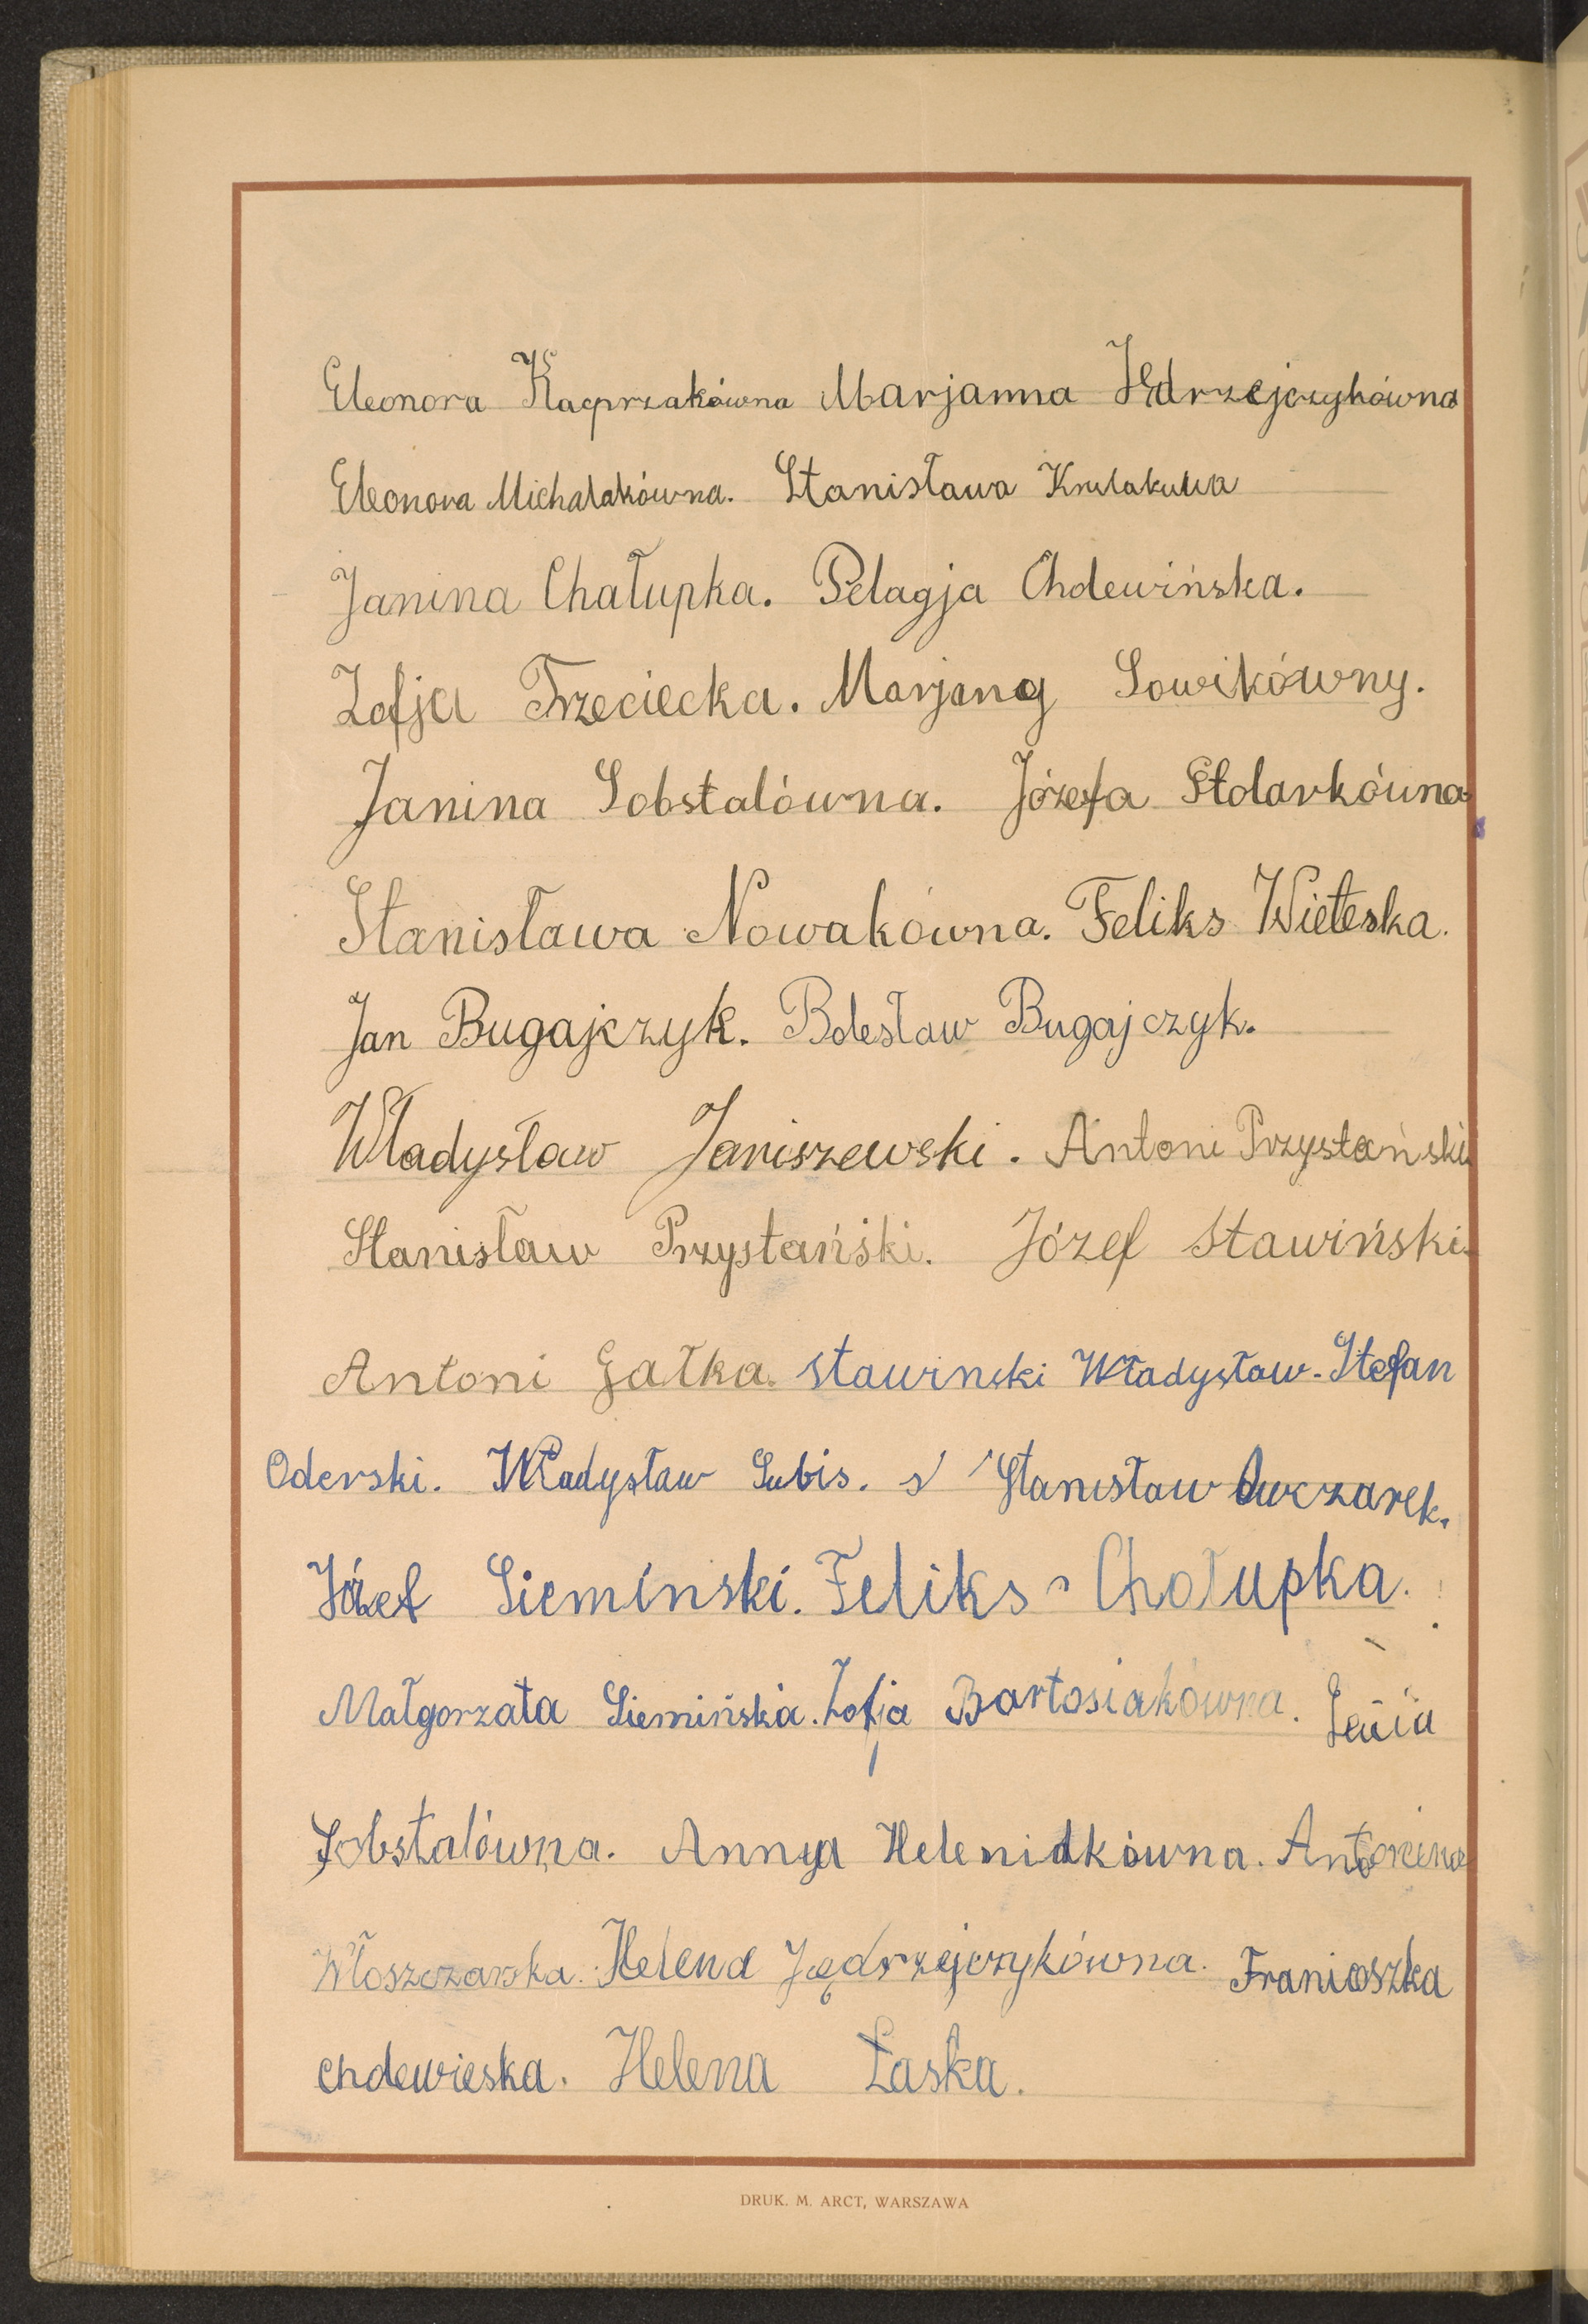 Eleonora Kacprzakówna Marjanna Jędrzejczykówna
Eleonora Michalakówna. Stanisława Krulakuwa
Janina Chałupka. Pelagja Chdewińska.
Zofja Trzeciecka. Marjang Sowikówny.
Janina Sobstalówna. Józefa Stolarkówna
Stanisława Nowakówna. Feliks Wieteska.
Jan Bugajczyk. Bolesław Bugajczyk.
Władysław Janiszewski. Antoni Przystański
Stanisław Przystański. Józef Stawiński.
Antoni Gałka. Stawinski Władysław. Stefan
Oderski. Władysław Subis. s Stanisław Owczarek.
Józef Siemínskí. Feliks Chałupka.
Małgorzata Siemińska. Zofja Bartosiakówna.
Sobstalówna. Annya Helenidkówna. Antonina
Włoszczanka. Helena Jędrzejczykówna. Franicoszka
chdewieska. Helena Łaska.
DRUK. M. ARCT, WARSZAWA